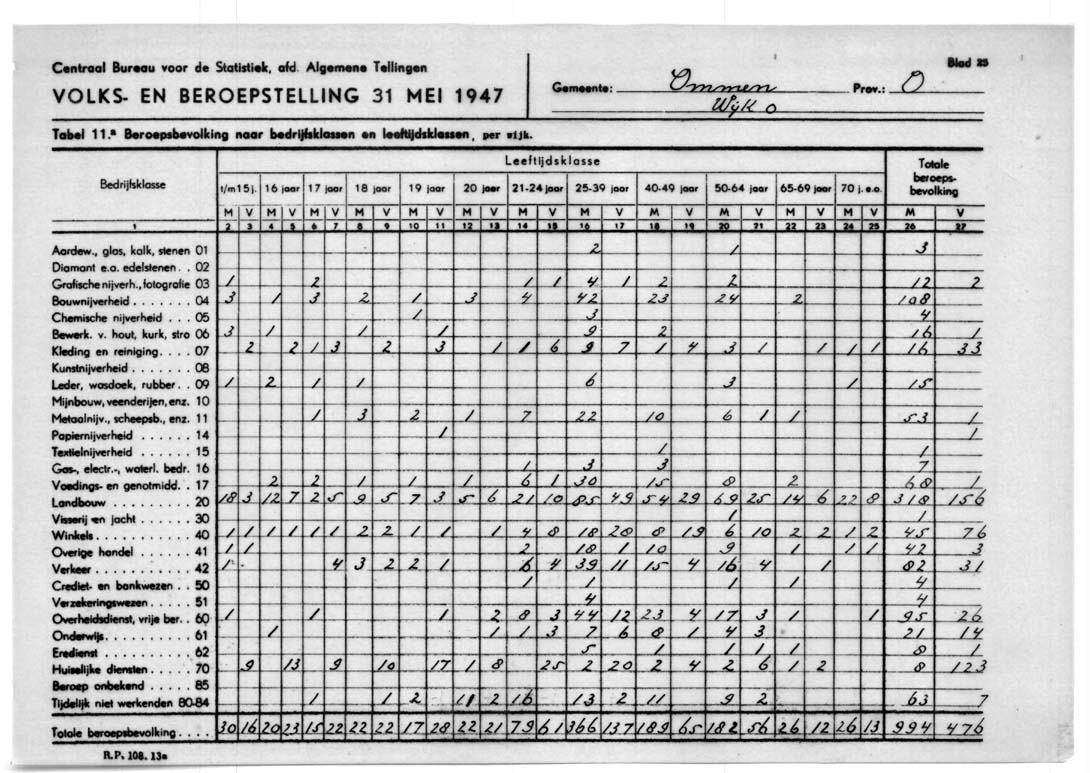 Centraal Bureau voor de Statistiek, afd. Algemene Tellingen
Blad 25
VOLKS- EN BEROEPSTELLING 31 MEI 1947
Gemeente: Ommen Prov.: O
Wijk O
Tabel 11.a Beroepsbevolking naar bedrijfsklassen en leeftijdsklassen, per wijk.
Bedrijfsklasse Leeftijdsklasse Totale beroeps-bevolking
t/m15 j. 16 jaar 17 jaar 18 jaar 19 jaar 20 jaar 21-24 jaar 25-39 jaar 40-49 jaar 50-64 jaar 65-69 jaar 70 j. e.o.
M V M V M V M V M V M V M V M V M V M V M V M V M V
1 2 3 4 5 6 7 8 9 10 11 12 13 14 15 16 17 18 19 20 21 22 23 24 25 26 27
Aardew., glas, kalk, stenen 01 2 1 3
Diamant e.a. edelstenen . . 02
Grafische nijverh., fotografie 03 1 2 1 1 4 1 2 2 12 2
Bouwnijverheid . . . . . . . 04 3 1 3 2 1 3 4 42 23 24 2 108
Chemische nijverheid . . . 05 1 3 4
Bewerk. v. hout, kurk, stro 06 3 1 1 1 9 2 16 1
Kleding en reiniging. . . . 07 2 2 1 3 2 3 1 1 6 9 7 1 4 3 1 1 1 1 16 33
Kunstnijverheid . . . . . . 08
Leder, wasdoek, rubber. . 09 1 2 1 1 6 3 1 15
Mijnbouw, veenderijen, enz. 10
Metaalnijv., scheepsb., enz. 11 1 3 2 1 7 22 10 6 1 1 53 1
Papiernijverheid . . . . . . 14 1 1
Textielnijverheid . . . . . . 15 1 1
Gas-, electr.-, waterl. bedr. 16 1 3 3 7
Voedings- en genotmidd. . 17 2 2 1 1 1 6 1 30 15 8 2 68 1
Landbouw . . . . . . . . . 20 18 3 12 7 2 5 9 5 7 3 5 6 21 10 85 49 54 29 69 25 14 6 22 8 318 156
Visserij en jacht . . . . . . 30 1 1
Winkels . . . . . . . . . . . 40 1 1 1 1 1 1 2 2 1 1 1 4 8 18 20 8 19 6 10 2 2 1 2 45 76
Overige handel . . . . . . 41 1 1 2 18 1 10 9 1 1 1 42 3
Verkeer . . . . . . . . . . . 42 1 4 3 2 2 1 6 4 39 11 15 4 16 4 1 82 31
Crediet- en bankwezen . . 50 1 1 1 1 4
Verzekeringswezen . . . . . 51 4 4
Overheidsdienst, vrije ber. . 60 1 1 1 2 8 3 44 12 23 4 17 3 1 1 95 26
Onderwijs . . . . . . . . . . 61 1 1 1 3 7 6 8 1 4 3 21 14
Eredienst . . . . . . . . . . 62 5 1 1 1 1 8 1
Huiselijke diensten . . . . . 70 9 13 9 10 17 1 8 25 2 20 2 4 2 6 1 2 8 123
Beroep onbekend . . . . . 85
Tijdelijk niet werkenden 80-84 1 1 2 2 16 13 2 11 9 2 63 7
Totale beroepsbevolking . . . . 30 16 20 23 15 22 22 22 17 28 22 21 79 61 366 137 189 65 182 56 26 12 26 13 994 476
R.P. 108. 13a